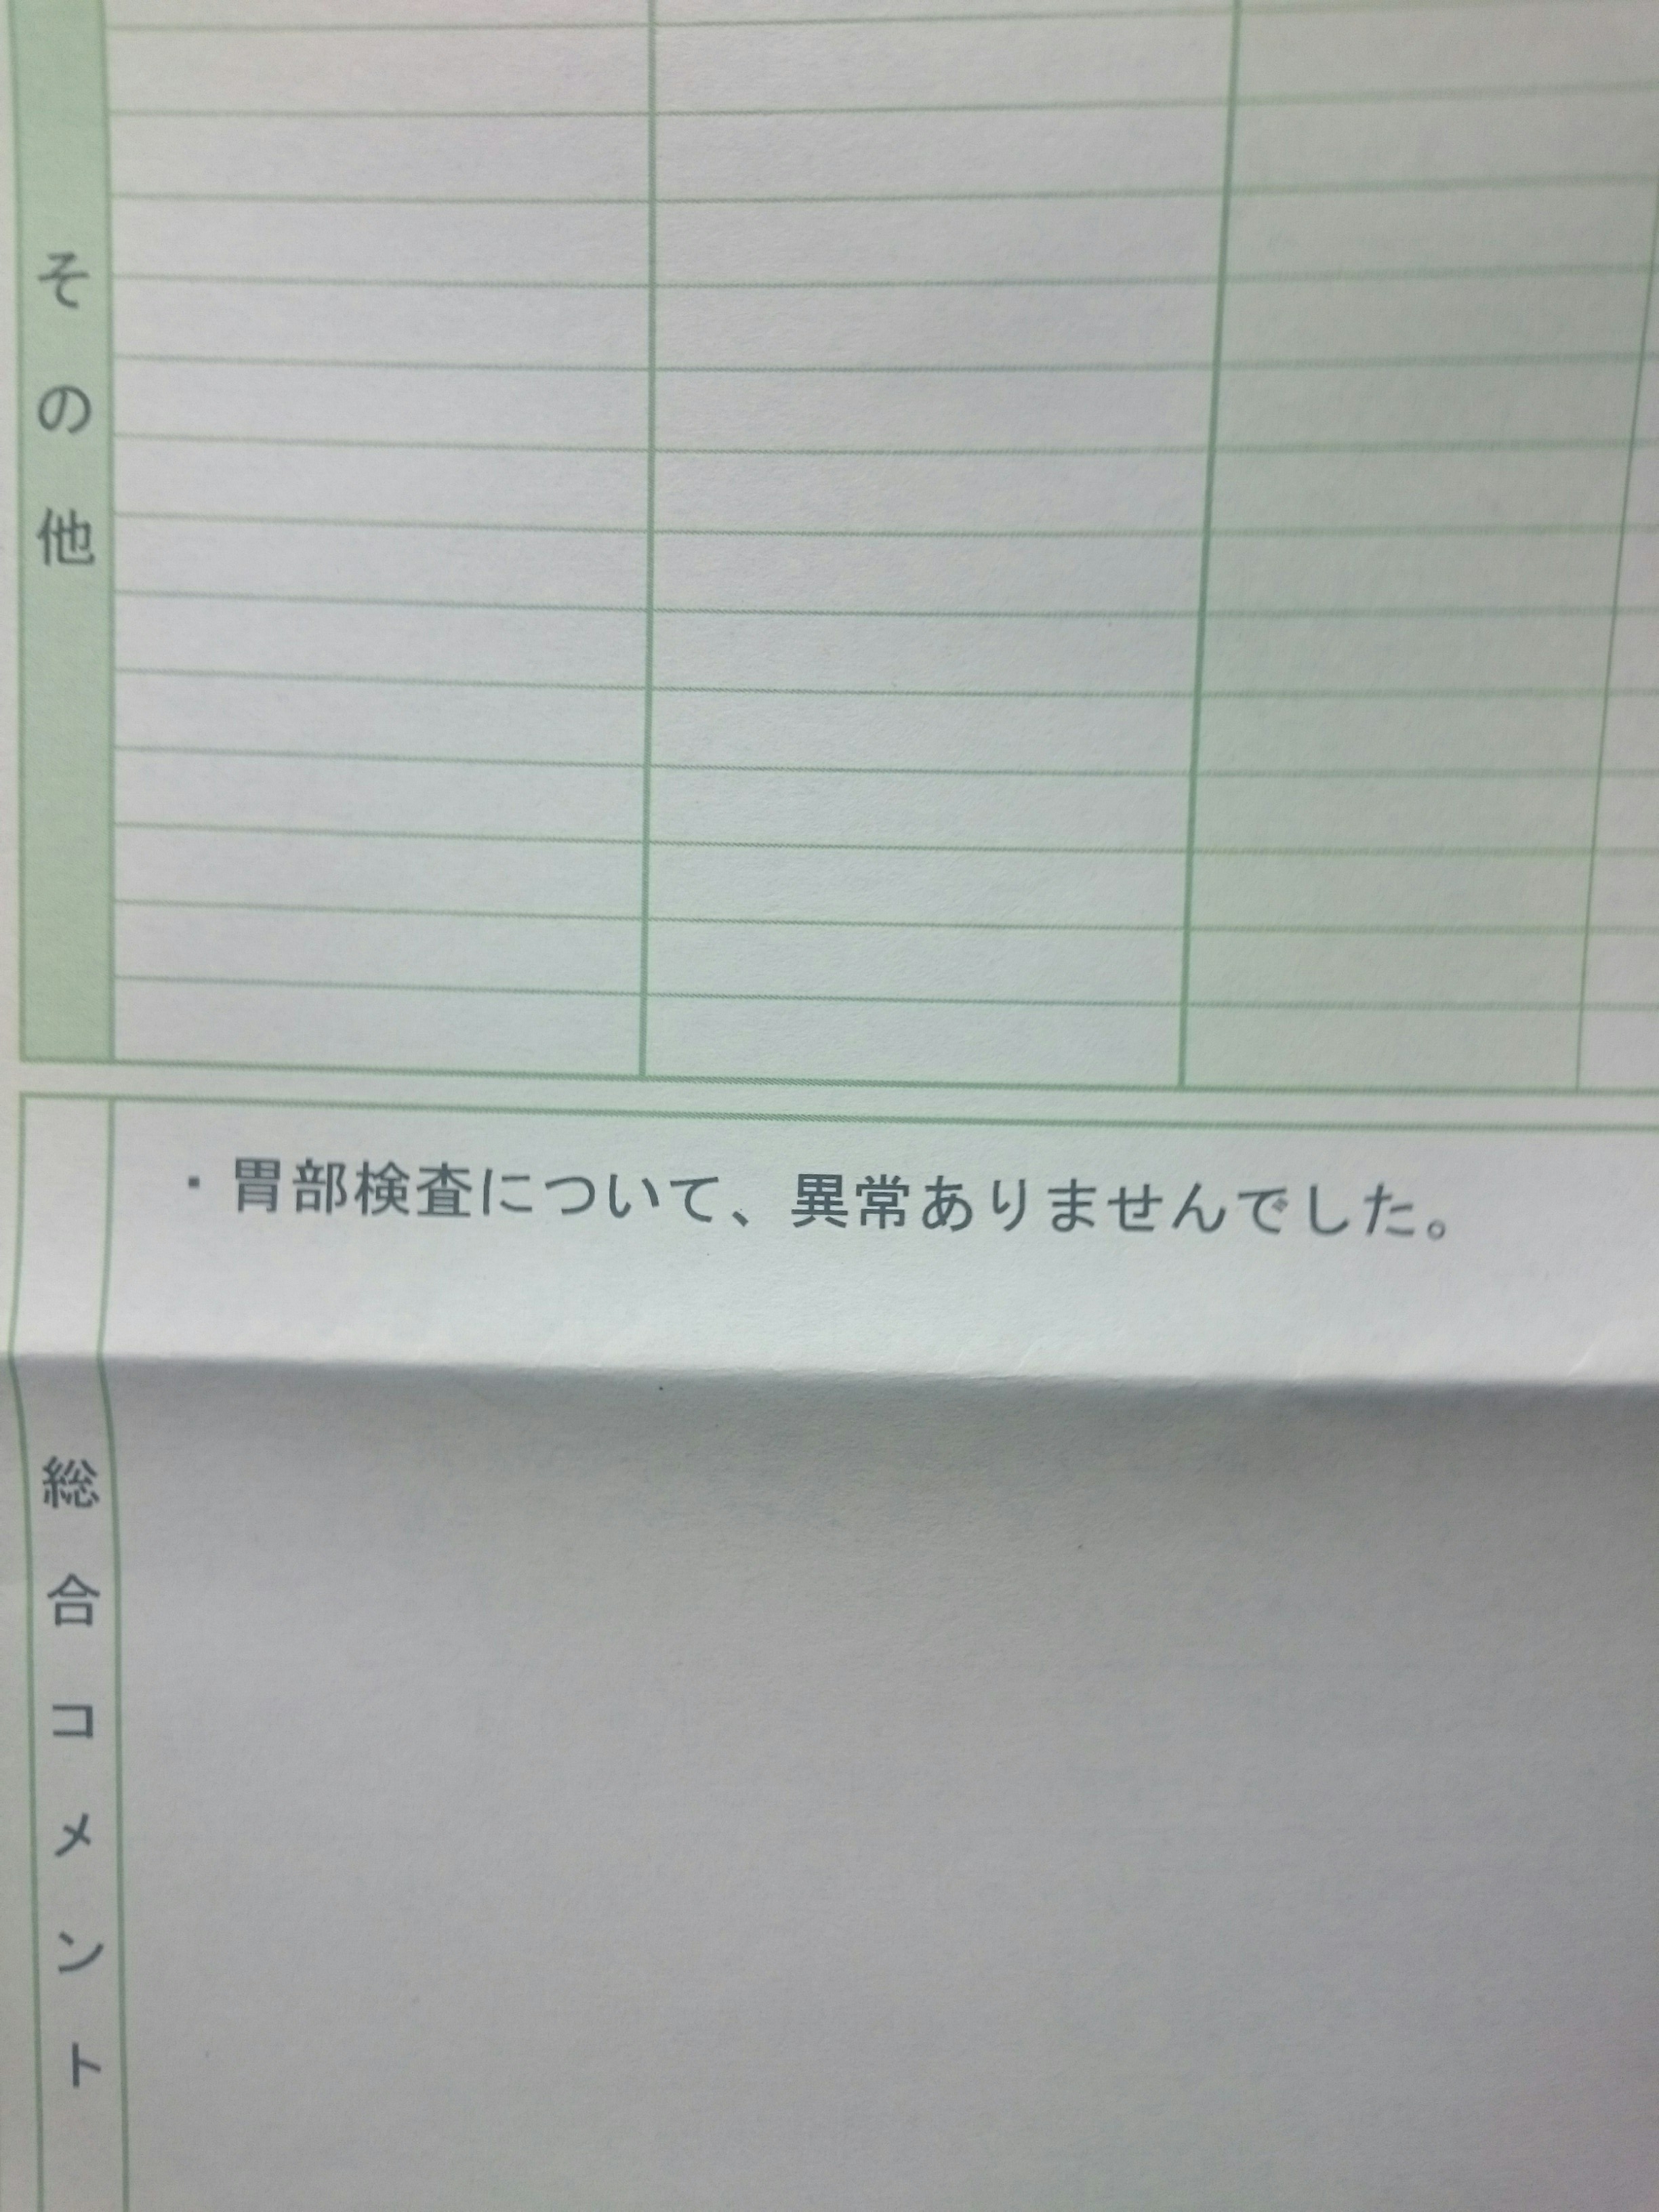 その他
・胃部検査について、異常ありませんでした。
総合コメント